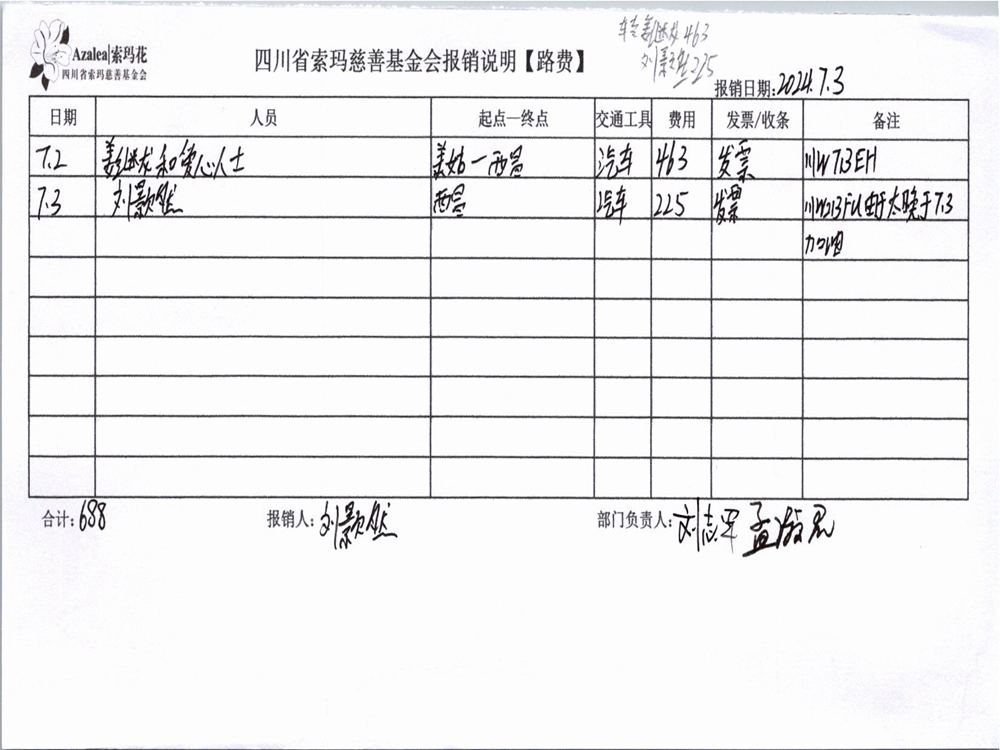 Azalea|索玛花
四川省索玛慈善基金会
四川省索玛慈善基金会报销说明【路费】
463
刘景然 225
报销日期:2024.7.3
日期 人员 起点—终点 交通工具 费用 发票/收条 备注
7.2 姜继龙和爱心人士 美姑—西昌 汽车 463 发票 川W713EH
7.3 刘景然 西昌 汽车 225 发票 由于太晚于7.3
加油
合计:688 报销人:刘景然 部门负责人:刘志军